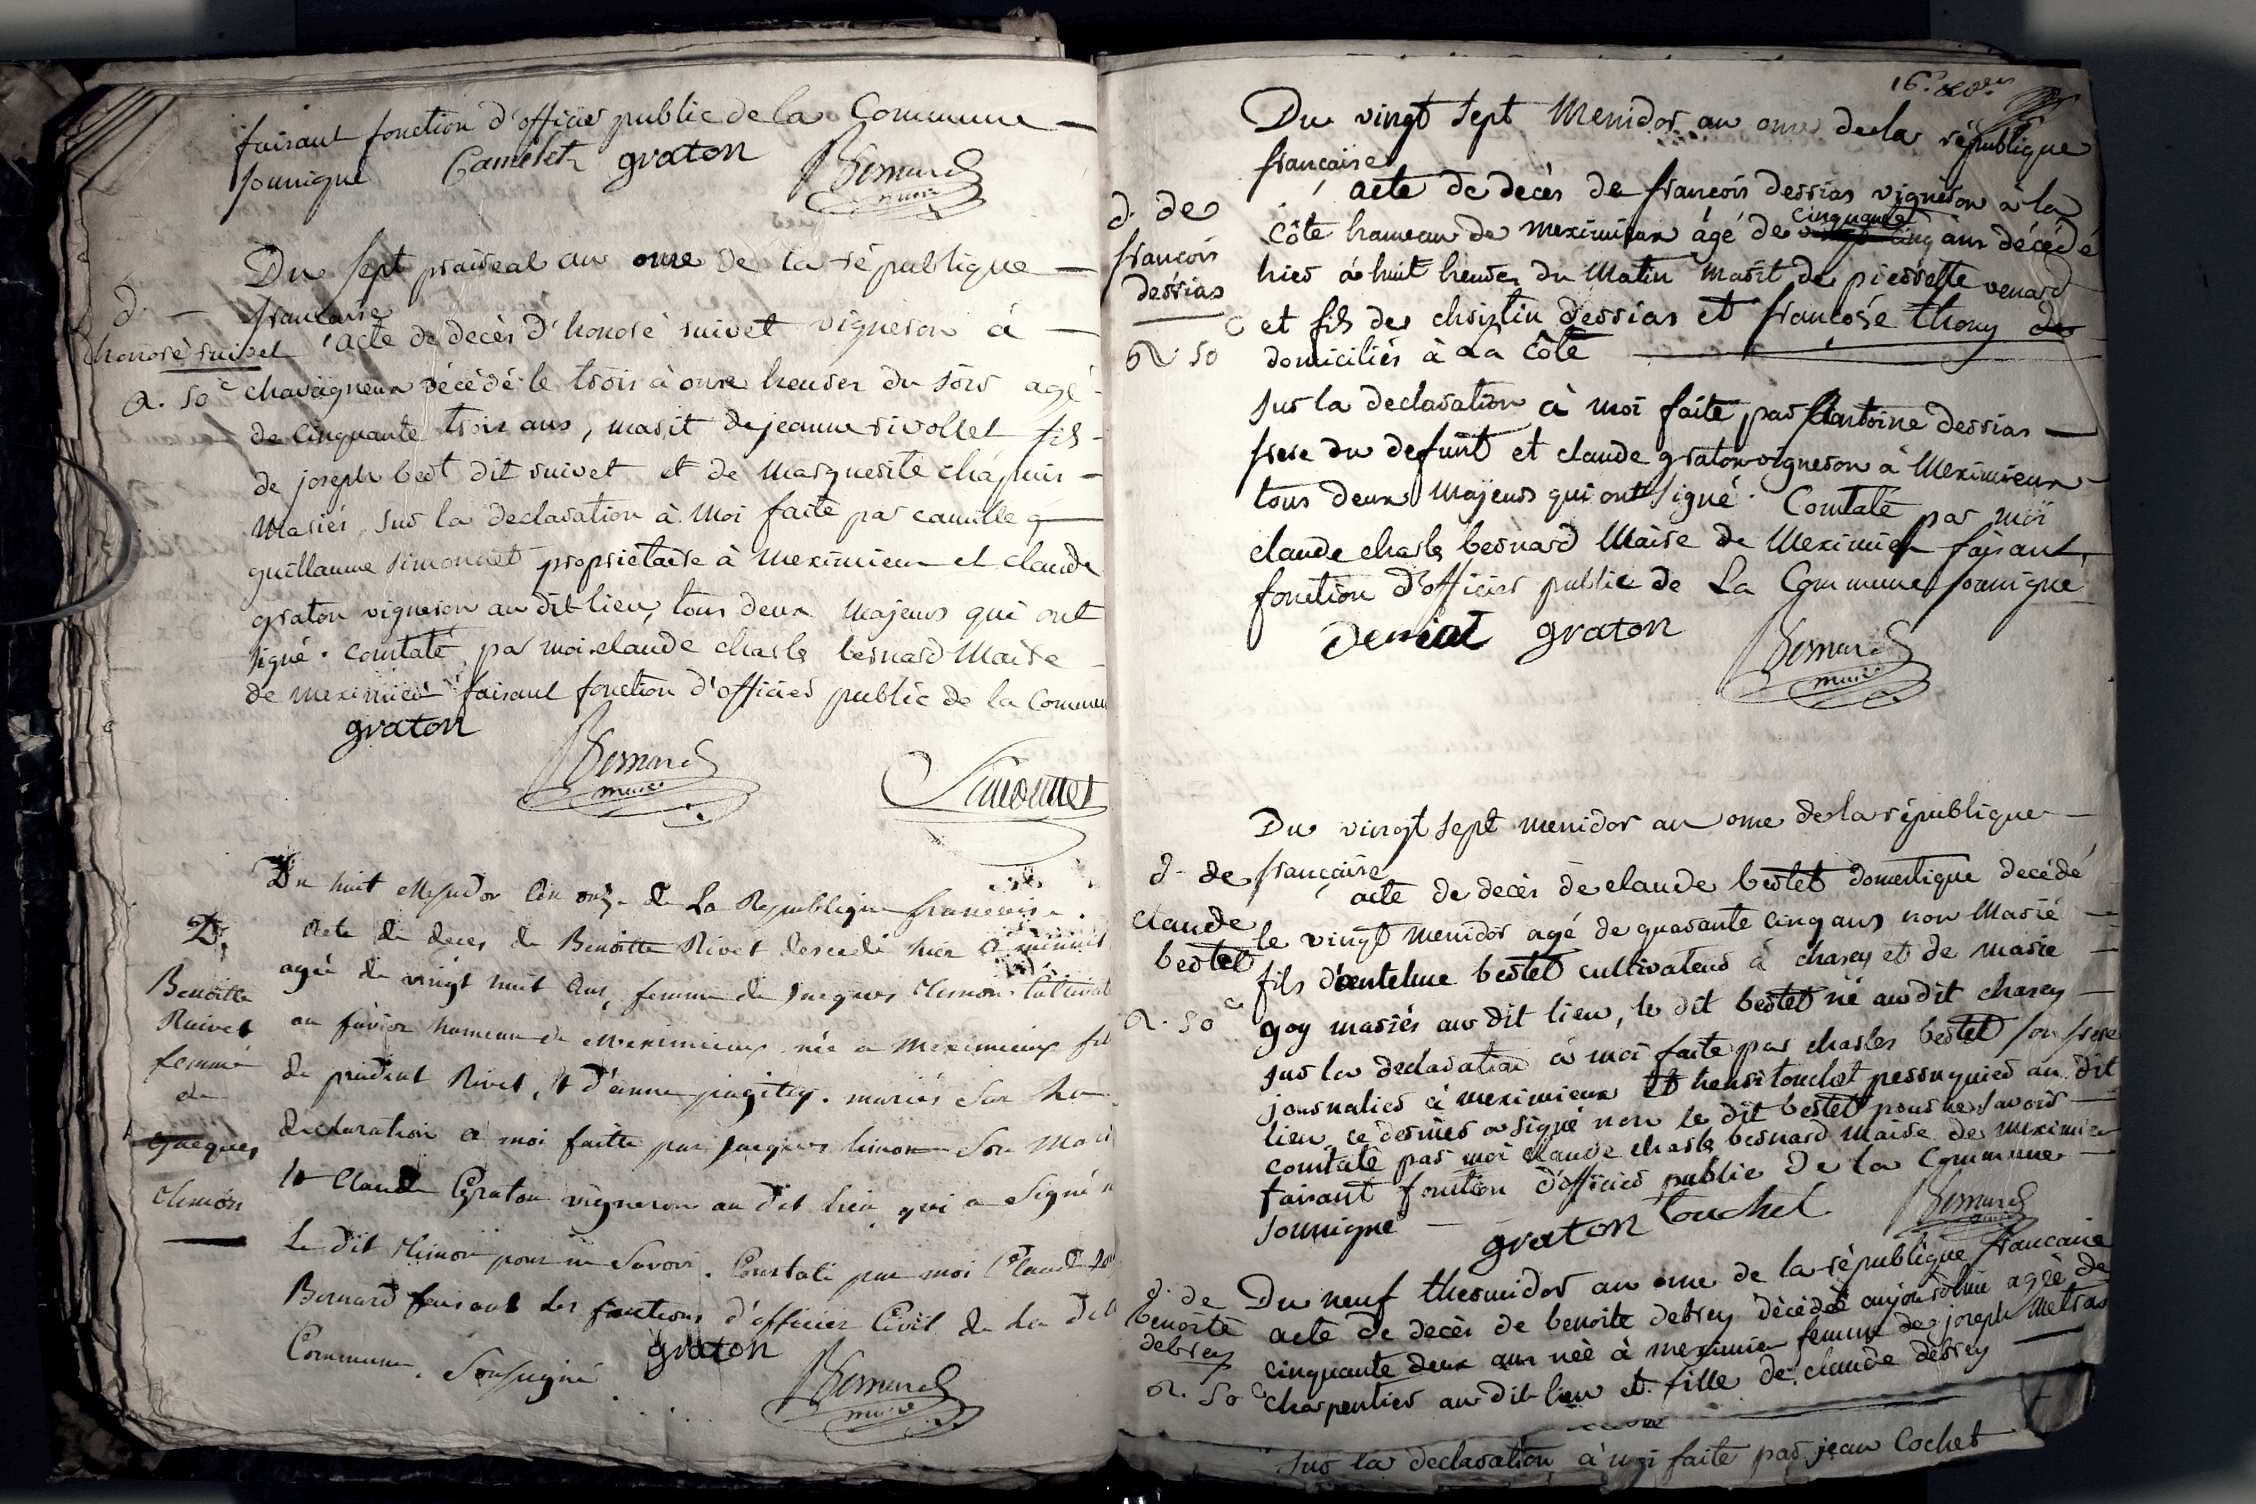 faisant fonction d'officier public de la Commune
sousigné Camelet graton Bernard
maire
Du sept prairéal an onze de la république
française
d.
honoré ruivet
acte de decès d'honoré ruivet vigneron à
chavagneux décédé le trois à onze heures du soir agé
a. 50 c
de cinquante trois ans, marit de jeanne rivollet fils
de joseph bert dit ruivet et de marguerite chapuis
mariés sur la declaration à moi faite par camille
guillaume simonnet proprietaire à meximieux et claude
graton vigneron au dit lieu, tous deux majeurs qui ont
signé. constaté par moi claude charle bernard Maire
de meximieu faisant fonction d'officier public de la Commun
graton
Bernard
maire
Simonnet
Du huit Messidor L'an onze de La Republique francoise.
D.
Benoitte
Ruivet
femme
de
Jacques
Climon
Acte de deces de Benoitte Rivet descedé hier a minuit
agée de vingt huit Ans, femme de Jacques Climon Cultivat
au hameau de Meximieux née a Meximieux fil
de prudent Rivet, & d'anne mariés Sur La
declaration a moi faitte par Jacques limon Son Mari
& Claude Graton vigneron au dit lieu qui a Signé n
Le dit Climon pour ne Savoir. Constaté par moi Claude
Bernard faisant les fonctions d'officier Civil de La dite
Commune. Soussigné
graton
Bernard
maire
16.
Du vingt sept Messidor an onze de la république
française
d. de
françois
derrias
a. 50 c
acte de decès de françois derrias vigneron à la
cinquante
Côte hameau de meximieux agé de cinq ans décédé
hier à huit heures du Matin marit de pierrette venard
et fils de christin derrias et françoise thony
domiciliés à La côte
sur la declaration à moi faite par Antoine derrias
frere du defunt et claude graton vigneron à Meximieux
tous deux Majeurs qui ont signé. Constaté par moi
claude charle bernard Maire de Meximieu faisant
fonction d'officier public de La Commune sousigné
deriat graton
Bernard
maire
Du vingt sept messidor an onze de la république
française
d. de
claude
bertet
a. 50 c
acte de decès de claude bertet domestique decédé
le vingt messidor agé de quarante cinq ans non Marié
fils d'entelme bertet cultivateur à charey et de marie
goy mariés au dit lieu, le dit bertet né au dit charey
sur la declaration à moi faite par charles bertet son frere
journalier à meximieux et henri touchet perruquier au dit
lieu, ce dernier a signé non le dit bertet pour ne savoir
constaté par moi claude charle bernard maire de meximieu
faisant fonction d'officier public de la Commune
sousigné
graton touchet Bernard
maire
d. de
benoite
debrey
a. 50 c
Du neuf thermidor an onze de la république francaise
acte de decès de benoite debrey décédé aujourd'hui agée de
cinquante deux ans née à meximieu femme de joseph metras
charpentier au dit lieu et fille de claude debrey
sur la declaration à moi faite par jean Cochet